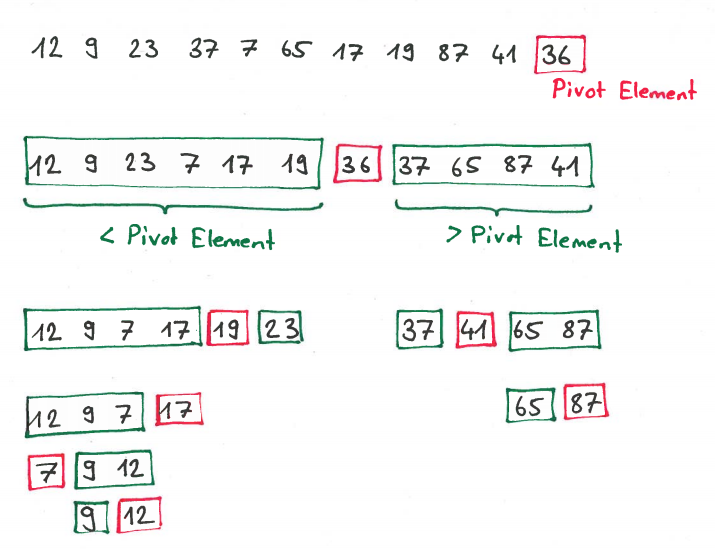 12 9 23 37 7 65 17 19 87 41 36
Pivot Element
12 9 23 7 17 19 36 37 65 87 41
< Pivot Element > Pivot Element
12 9 7 17 19 23 37 41 65 87
12 9 7 17 65 87
7 9 12
9 12